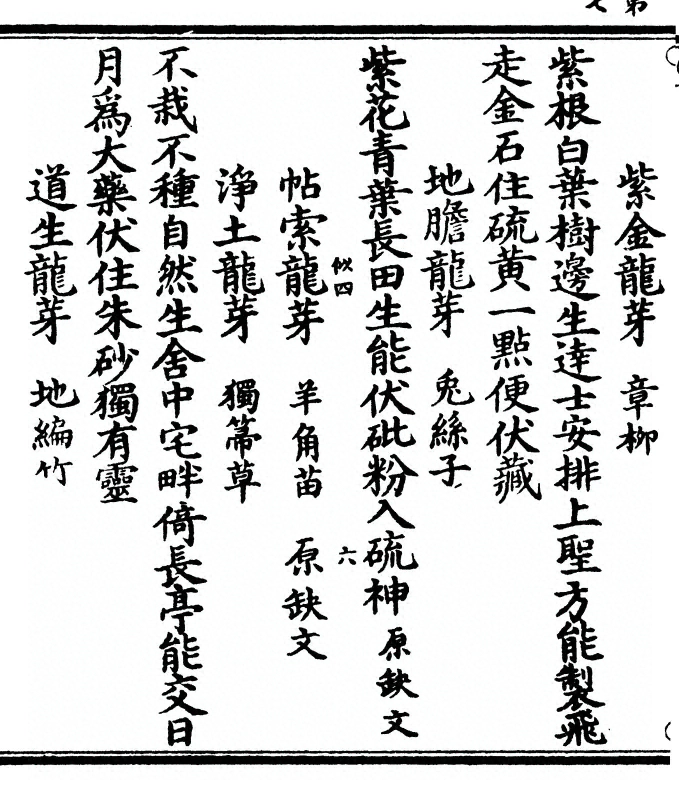 第七
紫金龍芽　章柳
紫根白葉樹邊生達士安排上聖方能製飛
走金石住硫黄一點便伏藏
地膽龍芽　兎絲子
紫花青葉長田生能伏砒粉入硫神　原缺文
似四　六
帖索龍芽　羊角苗　原缺文
淨土龍芽　獨箒草
不栽不種自然生舍中宅畔倚長亭能交日
月爲大藥伏住朱砂獨有靈
道生龍芽　地編竹